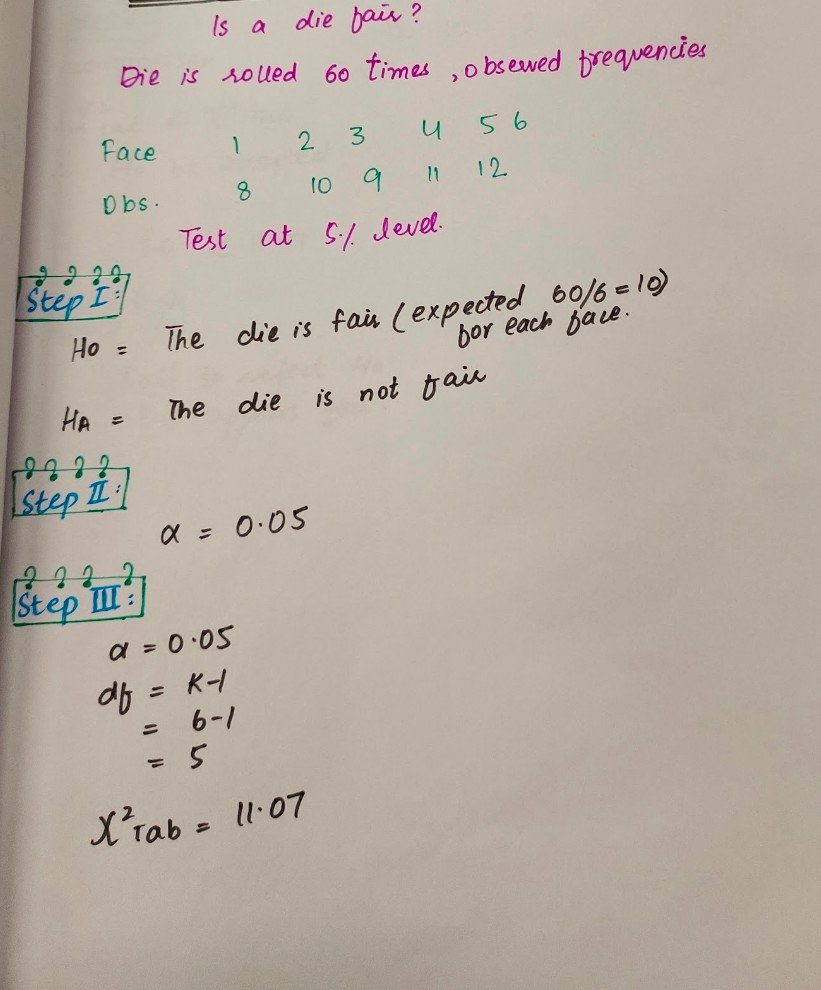 Is a die fair?
Die is rolled 60 times, observed frequencies
Face 1 2 3 4 5 6
Obs. 8 10 9 11 12
Test at 5% level.
Step I:
H0 = The die is fair (expected 60/6 = 10)
for each face.
HA = The die is not fair
Step II:
α = 0.05
Step III:
α = 0.05
df = K-1
= 6-1
= 5
X²Tab = 11.07